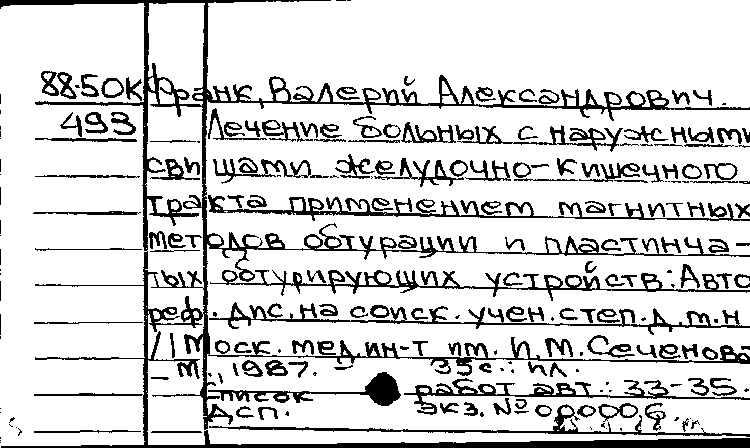 88-50К Франк, Валерий Александрович.
493 Лечение больных с наружными
свищами желудочно-кишечного
тракта применением магнитных
методов обтурации и пластинча-
тых обтурирующих устройств: Авто
реф. дис. на соиск. учен. степ. д.м.н
/ I Моск. мед. ин-т им. И.М. Сеченова
- М., 1987. - 35 с.: ил.
Список работ авт.: 33-35.
ДСП. Экз. № 000006.